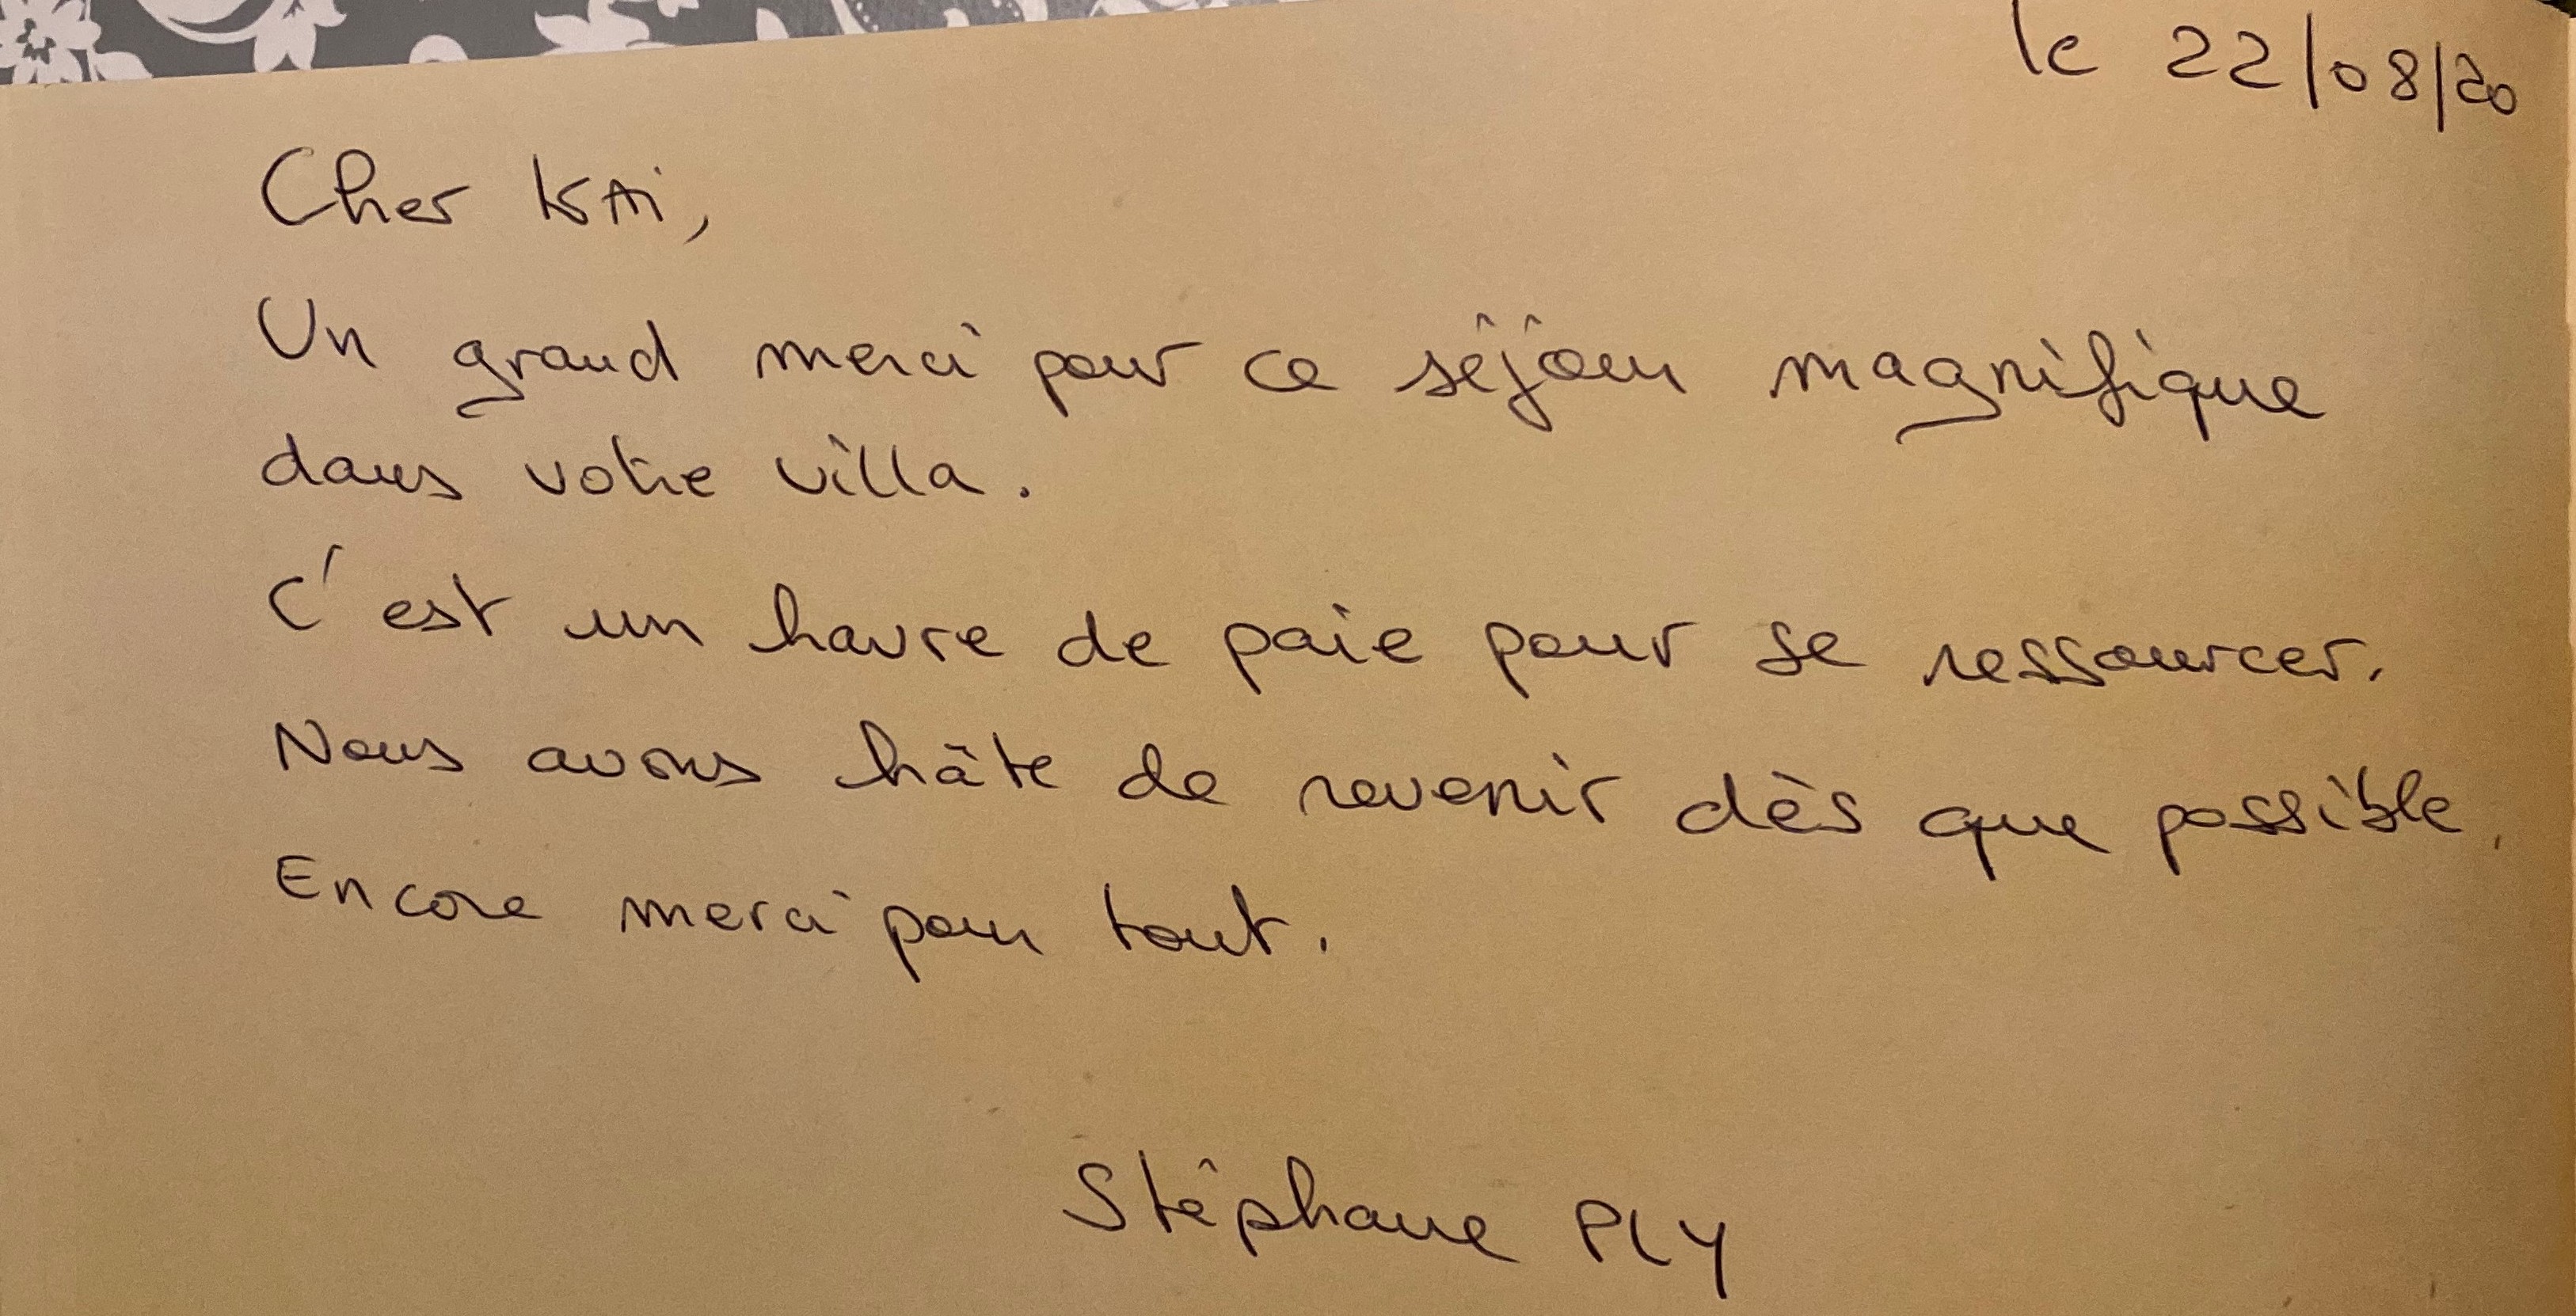 le 22/08/20
Cher KAi,
Un grand merci pour ce séjour magnifique
dans votre villa.
C'est un havre de paie pour se ressourcer.
Nous avons hâte de revenir dès que possible.
Encore merci pour tout.
Stéphane PLY